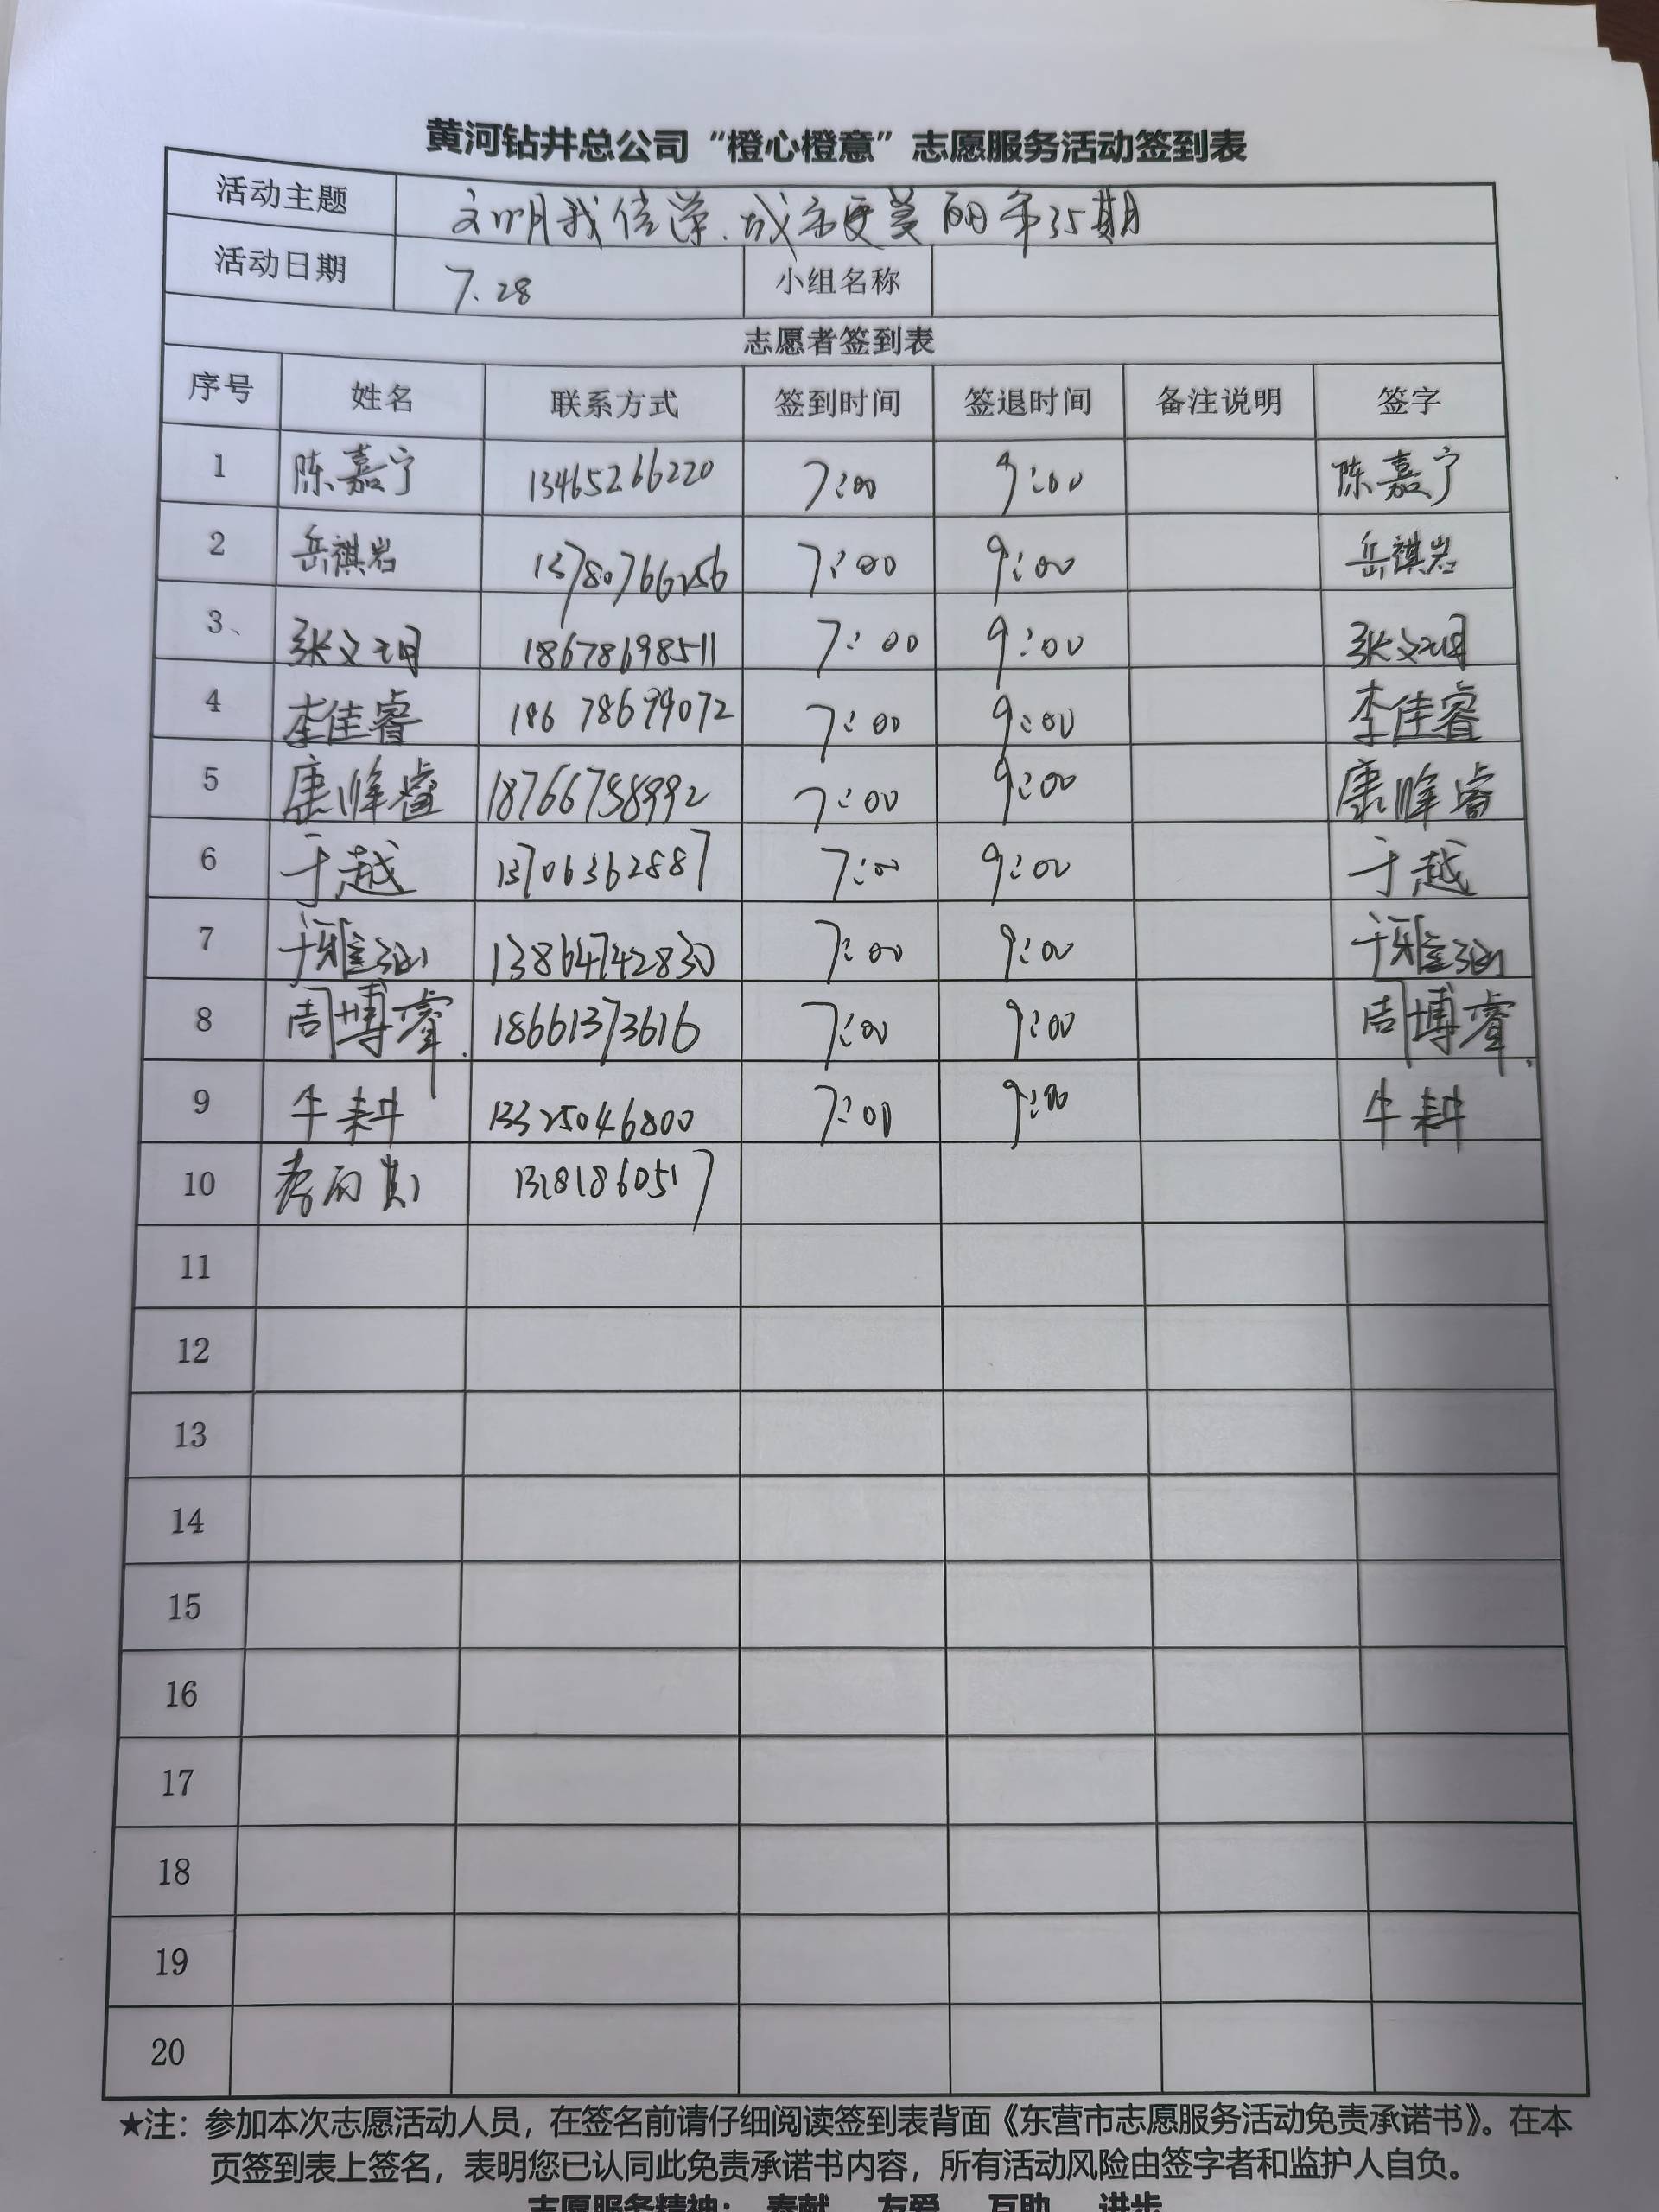 黄河钻井总公司“橙心橙意”志愿服务活动签到表
活动主题 文明我传递、城市更美丽第35期
活动日期 7.28 小组名称
志愿者签到表
序号 姓名 联系方式 签到时间 签退时间 备注说明 签字
1 陈嘉宁 13465266220 7:00 9:00 陈嘉宁
2 岳祺岩 13780766256 7:00 9:00 岳祺岩
3、 张文玥 18678698511 7:00 9:00 张文玥
4 李佳睿 18678699072 7:00 9:00 李佳睿
5 康峰睿 18766758992 7:00 9:00 康峰睿
6 于越 13706362887 7:00 9:00 于越
7 于雅涵 13864742830 7:00 9:00 于雅涵
8 周博睿 18661373616 7:00 9:00 周博睿
9 牛耕 13325046800 7:00 9:00 牛耕
10 13181860517
11
12
13
14
15
16
17
18
19
20
★注：参加本次志愿活动人员，在签名前请仔细阅读签到表背面《东营市志愿服务活动免责承诺书》。在本
页签到表上签名，表明您已认同此免责承诺书内容，所有活动风险由签字者和监护人自负。
志愿服务精神：奉献 友爱 互助 进步